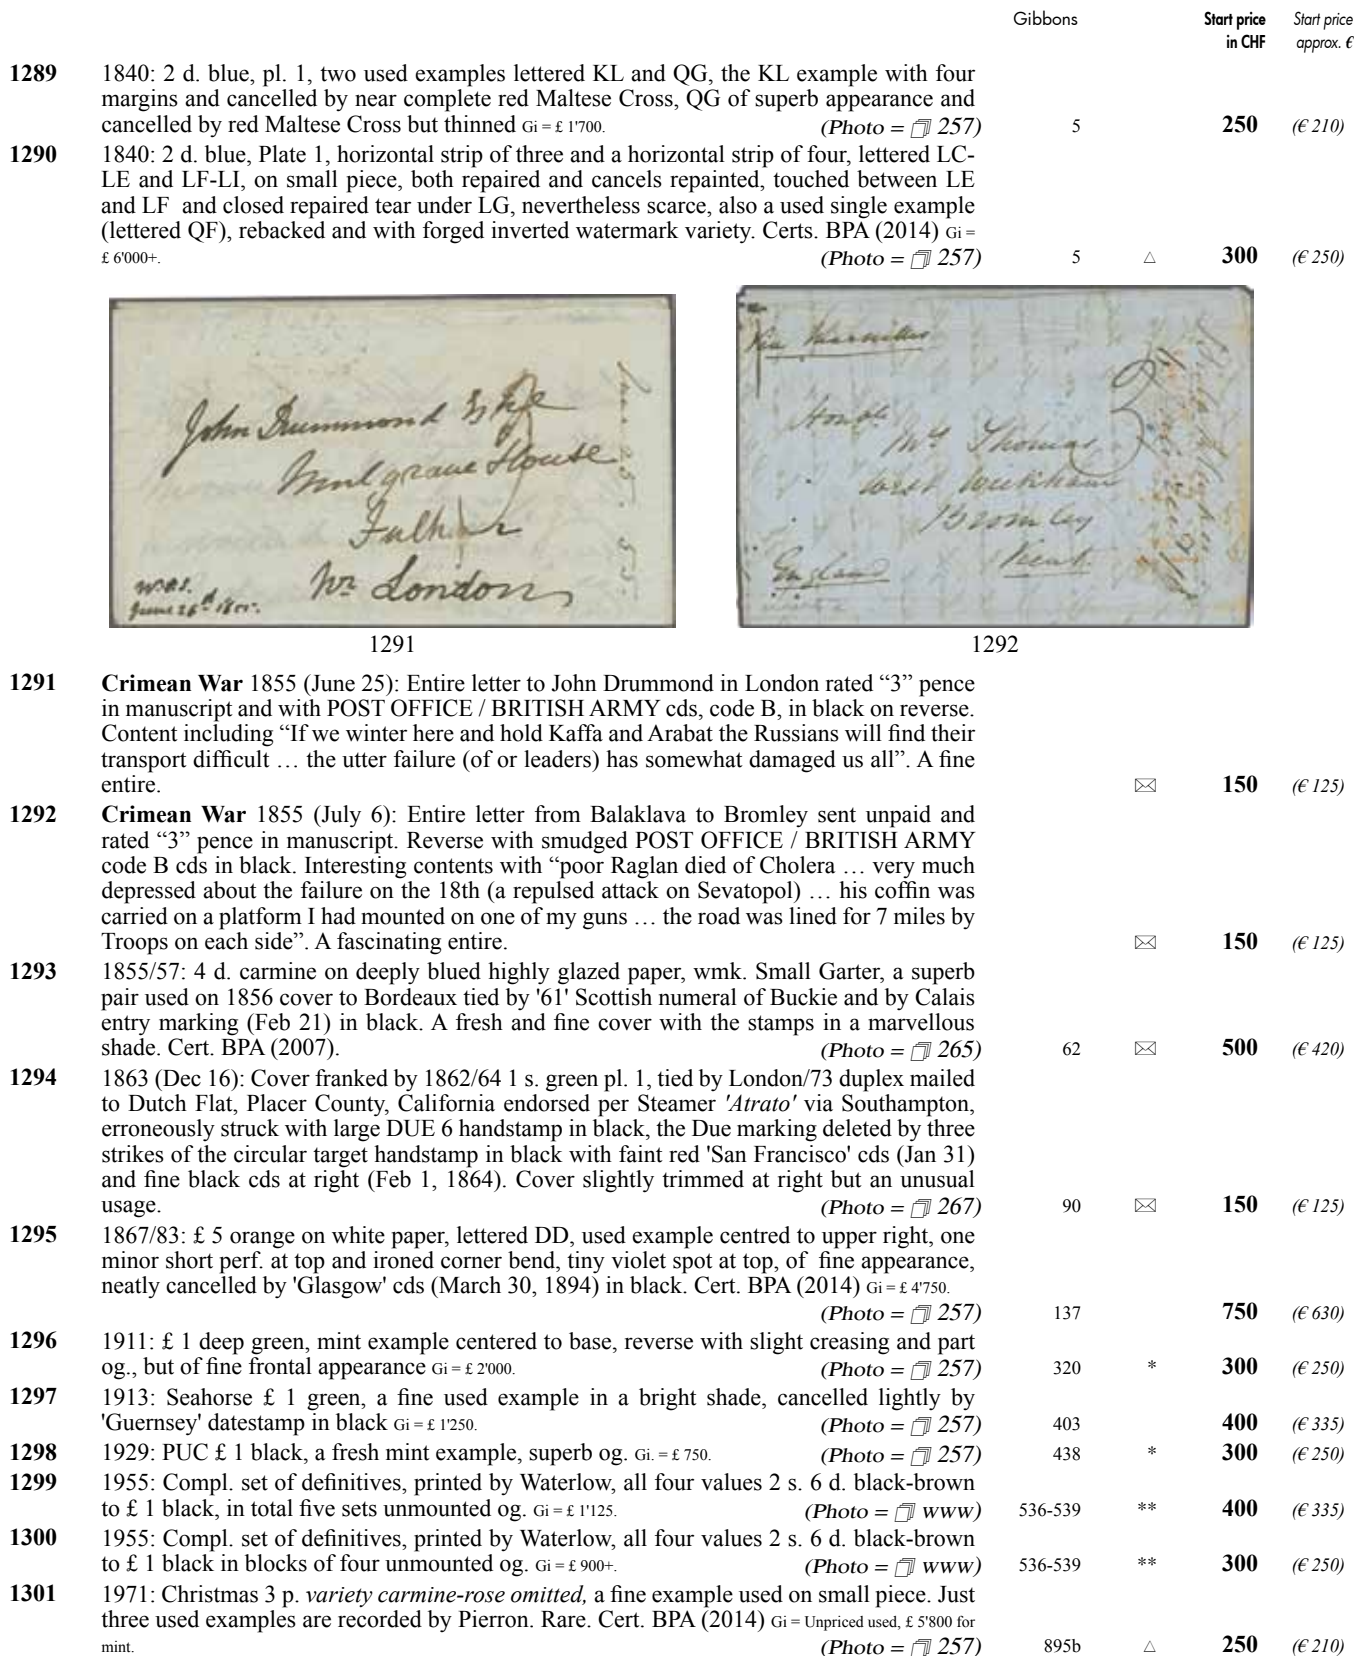 Gibbons Start price Start price
in CHF approx. €
1289 1840: 2 d. blue, pl. 1, two used examples lettered KL and QG, the KL example with four
margins and cancelled by near complete red Maltese Cross, QG of superb appearance and
cancelled by red Maltese Cross but thinned Gi = £ 1'700. (Photo = 257) 5 250 (€ 210)
1290 1840: 2 d. blue, Plate 1, horizontal strip of three and a horizontal strip of four, lettered LC-
LE and LF-LI, on small piece, both repaired and cancels repainted, touched between LE
and LF and closed repaired tear under LG, nevertheless scarce, also a used single example
(lettered QF), rebacked and with forged inverted watermark variety. Certs. BPA (2014) Gi =
£ 6'000+. (Photo = 257) 5 △ 300 (€ 250)
John Drummond Esqre
Mulgrave House
Fulham
Nr London
June 26th
Via Marseilles
Honble
Mrs Thomas
West Wickham
Bromley
Kent
England
1291 1292
1291 Crimean War 1855 (June 25): Entire letter to John Drummond in London rated “3” pence
in manuscript and with POST OFFICE / BRITISH ARMY cds, code B, in black on reverse.
Content including “If we winter here and hold Kaffa and Arabat the Russians will find their
transport difficult … the utter failure (of or leaders) has somewhat damaged us all”. A fine
entire. ✉ 150 (€ 125)
1292 Crimean War 1855 (July 6): Entire letter from Balaklava to Bromley sent unpaid and
rated “3” pence in manuscript. Reverse with smudged POST OFFICE / BRITISH ARMY
code B cds in black. Interesting contents with “poor Raglan died of Cholera … very much
depressed about the failure on the 18th (a repulsed attack on Sevatopol) … his coffin was
carried on a platform I had mounted on one of my guns … the road was lined for 7 miles by
Troops on each side”. A fascinating entire. ✉ 150 (€ 125)
1293 1855/57: 4 d. carmine on deeply blued highly glazed paper, wmk. Small Garter, a superb
pair used on 1856 cover to Bordeaux tied by '61' Scottish numeral of Buckie and by Calais
entry marking (Feb 21) in black. A fresh and fine cover with the stamps in a marvellous
shade. Cert. BPA (2007). (Photo = 265) 62 ✉ 500 (€ 420)
1294 1863 (Dec 16): Cover franked by 1862/64 1 s. green pl. 1, tied by London/73 duplex mailed
to Dutch Flat, Placer County, California endorsed per Steamer 'Atrato' via Southampton,
erroneously struck with large DUE 6 handstamp in black, the Due marking deleted by three
strikes of the circular target handstamp in black with faint red 'San Francisco' cds (Jan 31)
and fine black cds at right (Feb 1, 1864). Cover slightly trimmed at right but an unusual
usage. (Photo = 267) 90 ✉ 150 (€ 125)
1295 1867/83: £ 5 orange on white paper, lettered DD, used example centred to upper right, one
minor short perf. at top and ironed corner bend, tiny violet spot at top, of fine appearance,
neatly cancelled by 'Glasgow' cds (March 30, 1894) in black. Cert. BPA (2014) Gi = £ 4'750.
(Photo = 257) 137 750 (€ 630)
1296 1911: £ 1 deep green, mint example centered to base, reverse with slight creasing and part
og., but of fine frontal appearance Gi = £ 2'000. (Photo = 257) 320 * 300 (€ 250)
1297 1913: Seahorse £ 1 green, a fine used example in a bright shade, cancelled lightly by
'Guernsey' datestamp in black Gi = £ 1'250. (Photo = 257) 403 400 (€ 335)
1298 1929: PUC £ 1 black, a fresh mint example, superb og. Gi. = £ 750. (Photo = 257) 438 * 300 (€ 250)
1299 1955: Compl. set of definitives, printed by Waterlow, all four values 2 s. 6 d. black-brown
to £ 1 black, in total five sets unmounted og. Gi = £ 1'125. (Photo = www) 536-539 ** 400 (€ 335)
1300 1955: Compl. set of definitives, printed by Waterlow, all four values 2 s. 6 d. black-brown
to £ 1 black in blocks of four unmounted og. Gi = £ 900+. (Photo = www) 536-539 ** 300 (€ 250)
1301 1971: Christmas 3 p. variety carmine-rose omitted, a fine example used on small piece. Just
three used examples are recorded by Pierron. Rare. Cert. BPA (2014) Gi = Unpriced used, £ 5'800 for
mint. (Photo = 257) 895b △ 250 (€ 210)